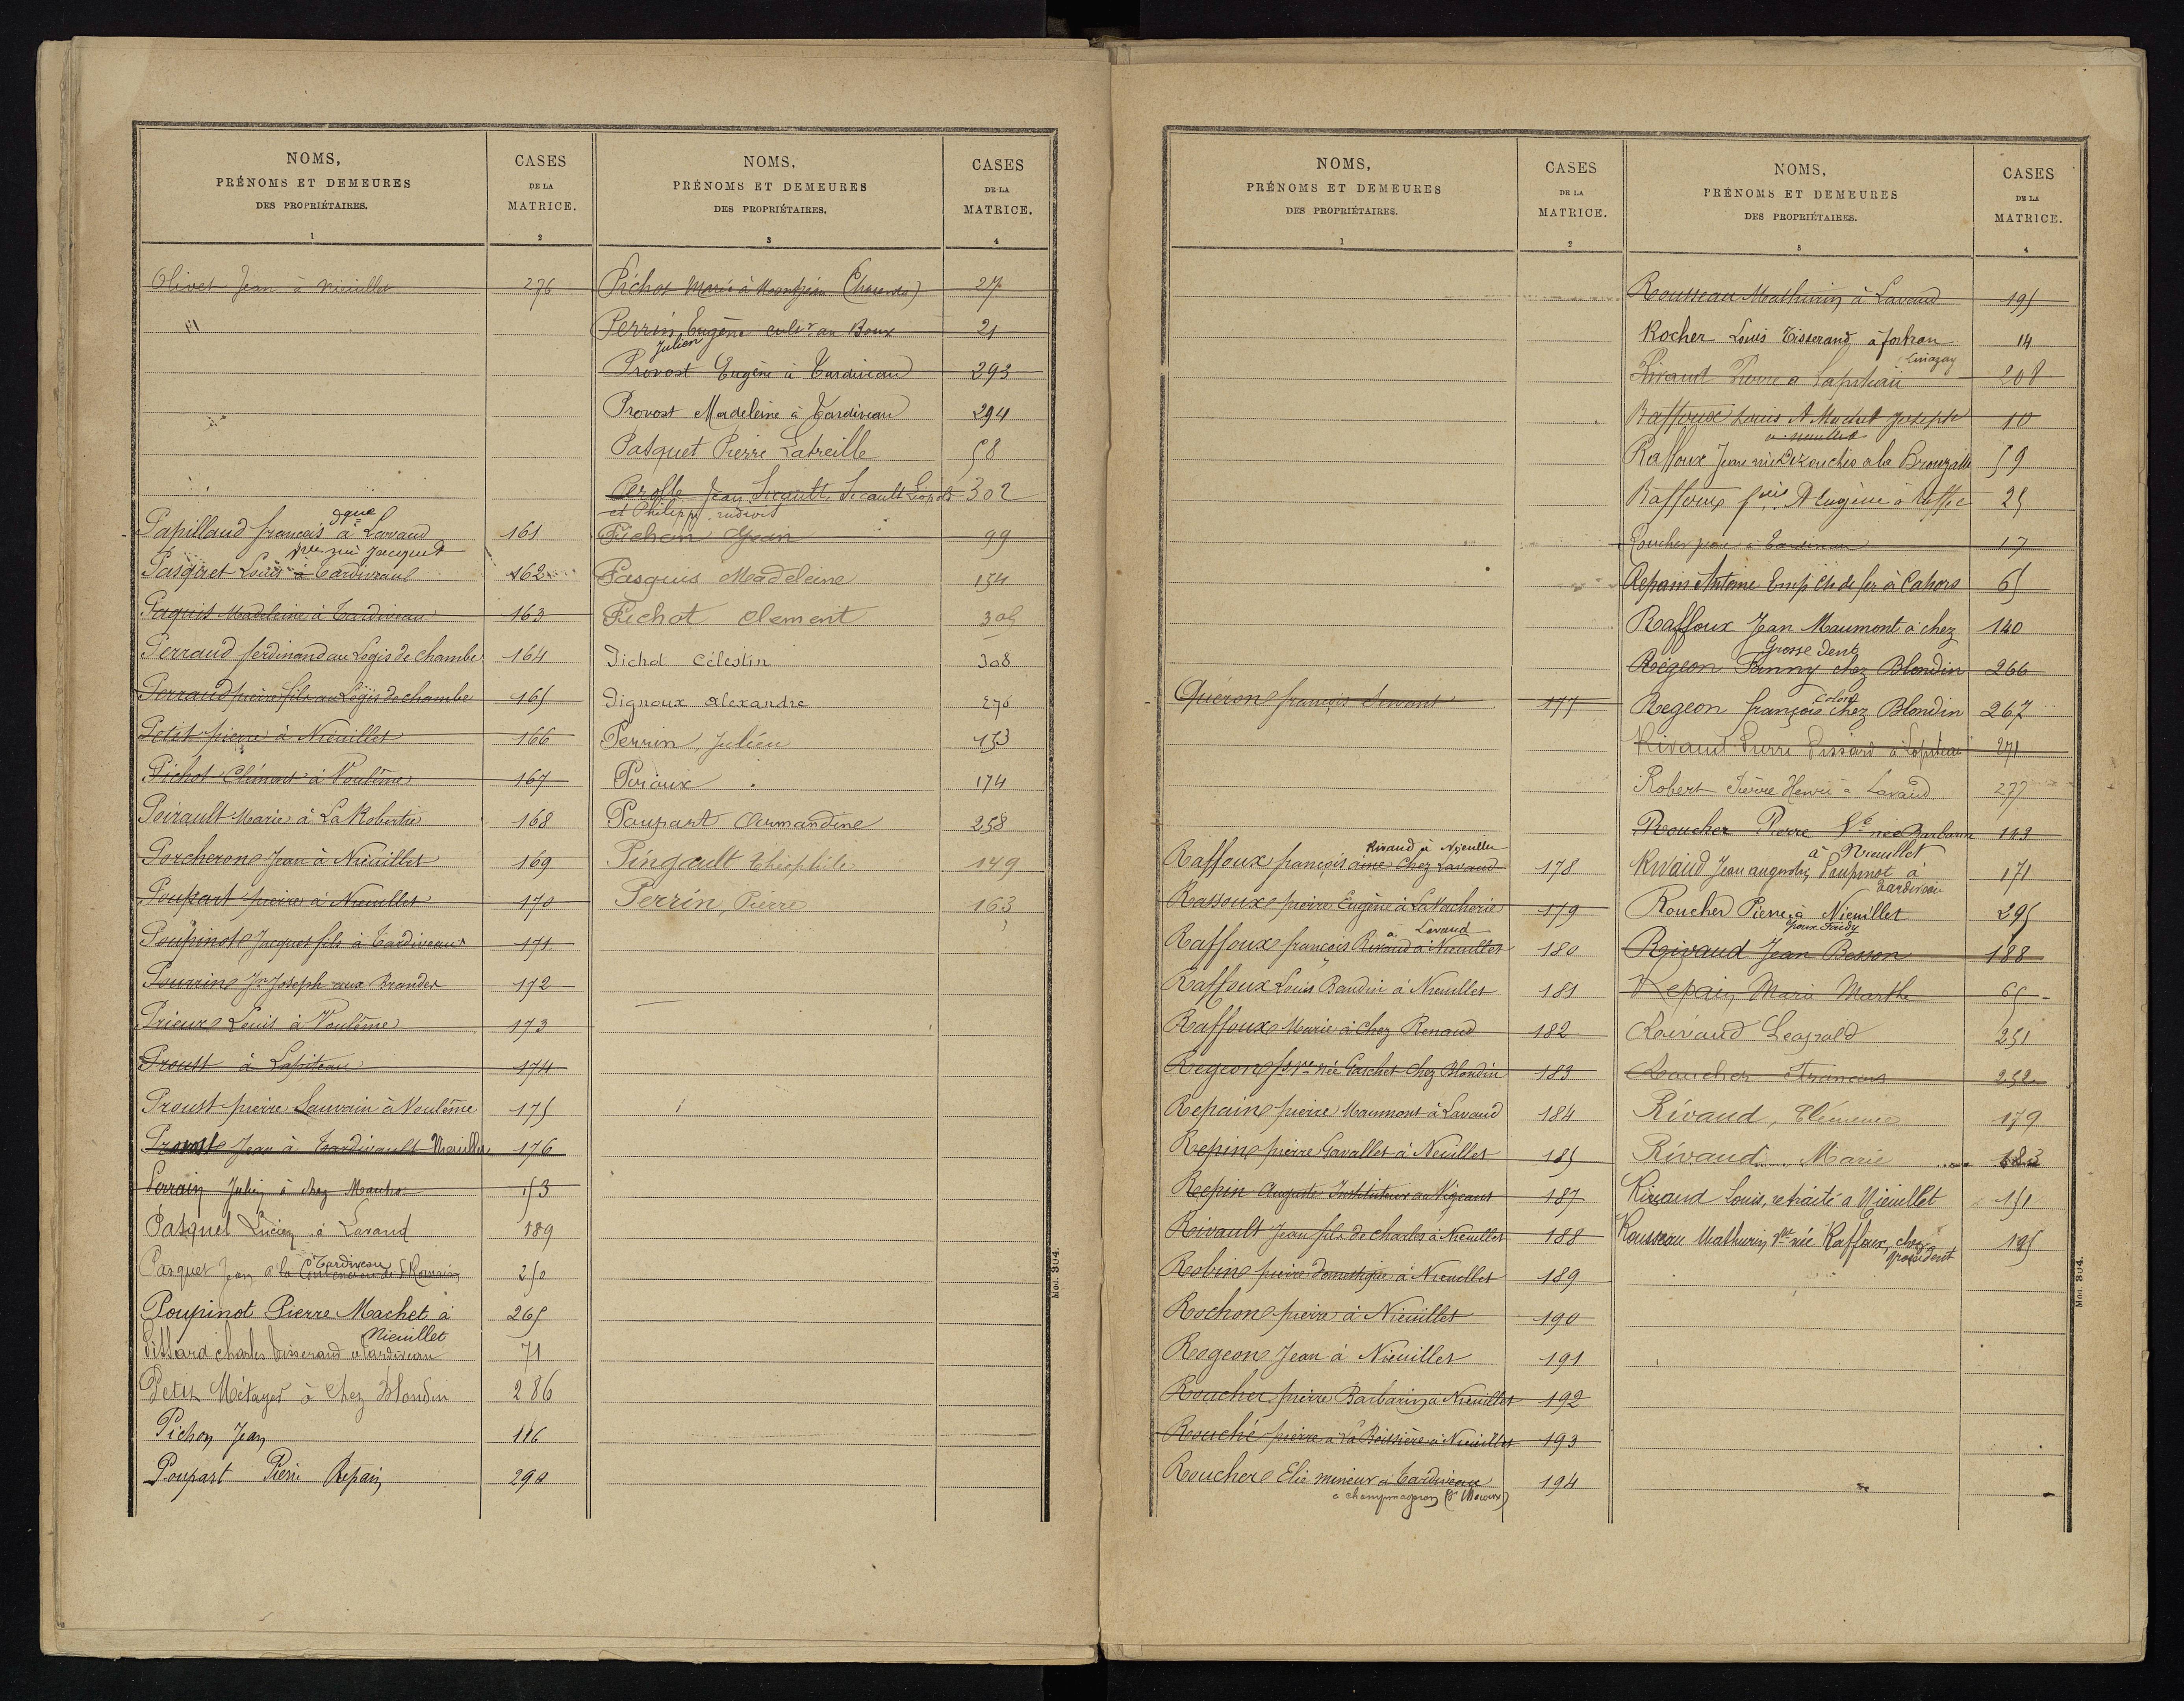 NOMS,
PRÉNOMS ET DEMEURES
DES PROPRIÉTAIRES.
1
CASES
DE LA
MATRICE.
2
Olivet Jean à Nieuillet 276
Papillaud françois dque à Lavaud 161
Pasquet Louis vve née Jacquet à Tardiveau 162
Paquis Madeleine à Tardiveau 163
Perraud ferdinand au Logis de chambe 164
Perraud pierre fils au Logis de chambe 165
Petit pierre à Nieuillet 166
Pichot Clémard à Voulême 167
Poirault Marie à La Robertie 168
Porcheron Jean à Nieuillet 169
Poupart pierre à Nieuillet 170
Poupinot Jacques fils à Tardiveau 171
Pourrin Jn Joseph aux Brandes 172
Prieur Louis à Voulême 173
Proust à Lapiteau 174
Proust pierre Sauvrin à Voulême 175
Provost Jean à Tardivault Nieuillet 176
Perrain Julien à chez Manho 153
Pasquet Lucien à Lavaud 189
Pasquet Jean à la Tardiveau de St Romain 250
Poupinot Pierre Machet à 265
Nieuillet
Pissard charles tisserand à Tardiveau 71
Petit Métayer à Chez Blondin 286
Pichon Jean 116
Poupart Pierre Repain 290
NOMS,
PRÉNOMS ET DEMEURES
DES PROPRIÉTAIRES.
3
CASES
DE LA
MATRICE.
4
Pichot Marie à Montjean (Charente) 27
Perrin Eugène cultr au Boux 21
Julien
Provost Eugène à Tardiveau 293
Provost Madeleine à Tardiveau 294
Pasquet Pierre Latreille 58
Perolle Jean Sicault, Sicault Léopold 302
et Philippe
Pichon Jean 99
Pasquis Madeleine 154
Pichot Clement 305
Pichot Célestin 308
Pignoux Alexandre 276
Perrin, Julien 153
Perioux 174
Poupart Armandine 258
Pingault Théophile 149
Perrin, Pierre 163
Mod. 304.
NOMS,
PRÉNOMS ET DEMEURES
DES PROPRIÉTAIRES.
1
CASES
DE LA
MATRICE.
2
Quéron françois Servant 177
Raffoux françois ainé Chez Lavaud Rivaud à Nieuillet 178
Raffoux pierre Eugène à La Vacherie 179
Raffoux françois Rivaud à Nieuillet à Lavaud 180
Raffoux Louis Baudin à Nieuillet 181
Raffoux Marie à Chez Renaud 182
Regeon fs vve née Gaschet Chez Blondin 183
Repain pierre Maumont à Lavaud 184
Repin pierre Gavallet à Nieuillet 185
Repin Auguste Instituteur au Vigeant 187
Rivault Jean fils de charles à Nieuillet 188
Robin pierre domestique à Nieuillet 189
Rochon pierre à Nieuillet 190
Rogeon Jean à Nieuillet 191
Roucher pierre Barbarin à Nieuillet 192
Rouché pierre à la Boissière à Nieuillet 193
Roucher Elie mineur à Tardiveau 194
à champmagnon (St Macoux)
NOMS,
PRÉNOMS ET DEMEURES
DES PROPRIÉTAIRES.
3
CASES
DE LA
MATRICE.
4
Rousseau Mathurin à Lavaud 195
Rocher Louis Tisserand à fortran 14
Linazay
Rivaud Pierre à Lapiteau 208
Raffoux Louis A Machet Joseph 10
à Nieuillet
Raffoux Jean à la Brouzatte 59
Raffoux fçois A Eugène à Ruffec 25
Roucher pierre à Tardiveau 17
Repain Antoine Emp Ch de fer à Cahors 65
Raffoux Jean Maumont à chez 140
Grosse Dent
Régeon Fanny chez Blondin 266
Regeon françois Colon chez Blondin 267
Rivaud Pierre Pissard à Lapiteau 271
Robert Pierre Henri à Lavaud 277
Roucher Pierre Ve née Barbarin 113
à Nieuillet
Rivaud Jean augustin Poupinot à 171
Tardiveau
Roucher Pierre à Nieuillet 295
Rivaud Jean Besson 188
Repain Marie Marthe 65
Roivaud Leopold 251
Roucher Francois 252
Rivaud, Clémence 179
Rivaud Marie 183
Rivaud Louis, retraité à Nieuillet 151
Rousseau Mathurin Vve née Raffoux, chez 195
grosse dent
Mod. 304.